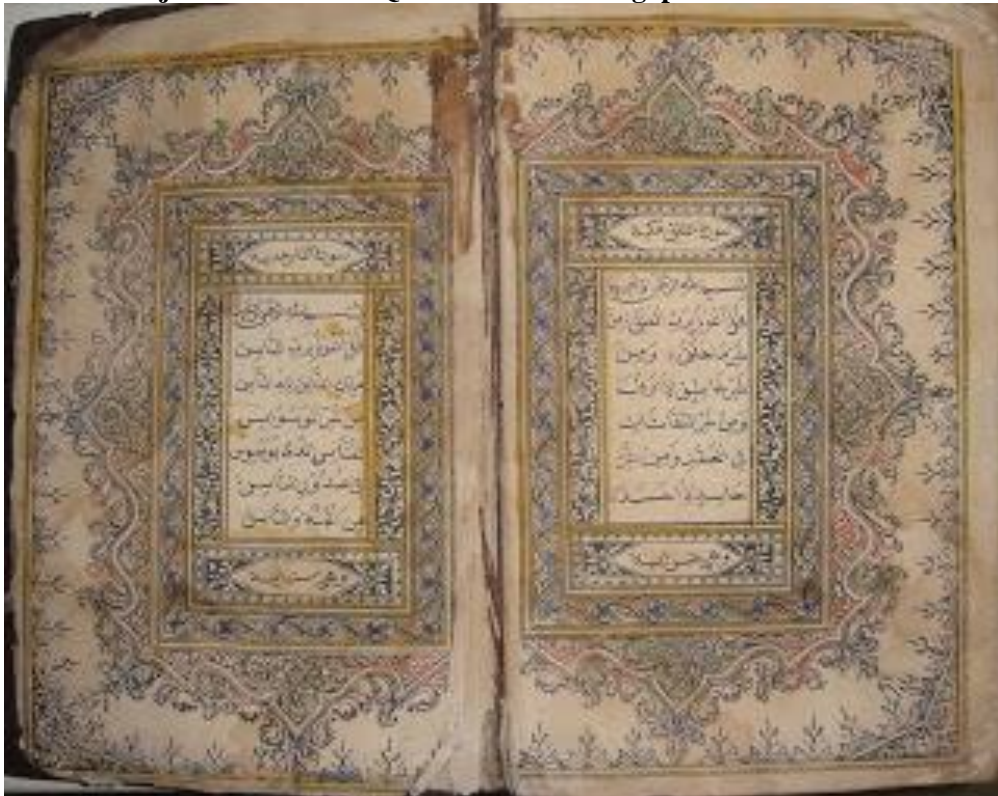 سورة الفلق مكية
بسم الله الرحمن الرحيم
قل اعوذ برب الفلق من
شر ما خلق ومن
شر غاسق اذا وقب
ومن شر النفاثات
في العقد ومن شر
حاسد اذا حسد
وهي خمس اية
سورة الناس
بسم الله الرحمن الرحيم
قل اعوذ برب الناس
ملك الناس اله الناس
من شر الوسواس
الخناس الذي يوسوس
في صدور الناس
من الجنة والناس
وهي اية